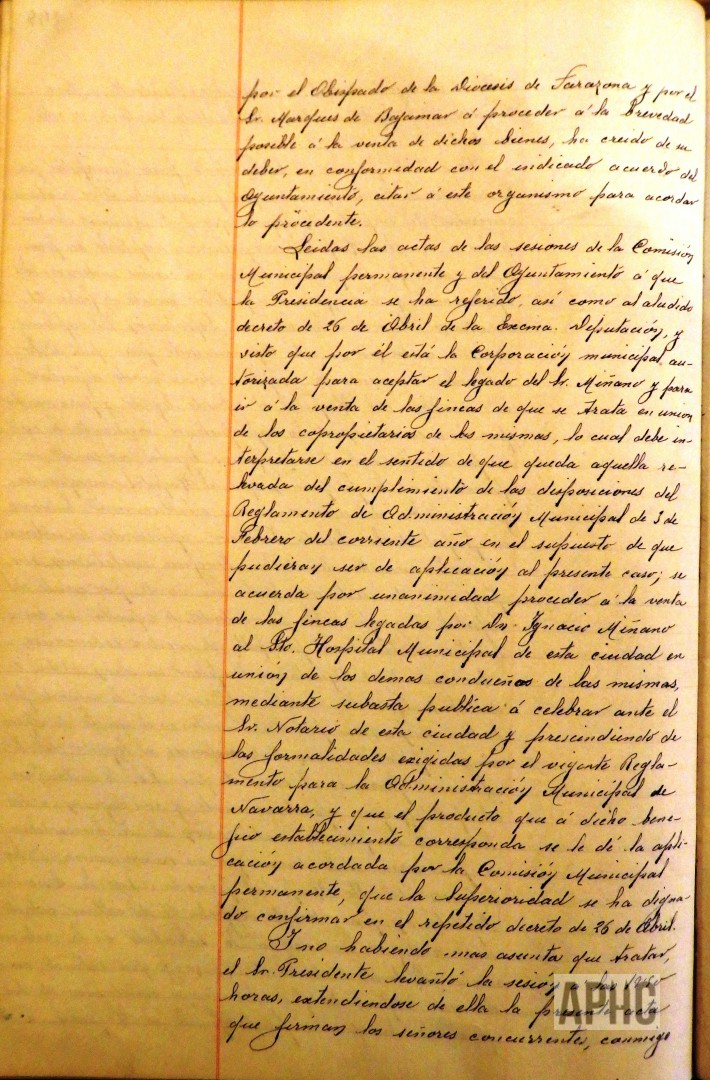 por el Obispado de la Diocesis de Tarazona y por el
Sr. Marques de Bajamar á proceder á la brevedad
posible á la venta de dichos bienes, ha creido de su
deber, en conformidad con el indicado acuerdo del
Ayuntamiento, citar á este organismo para acordar
lo procedente.
Leidas las actas de las sesiones de la Comisión
Municipal permanente y del Ayuntamiento á que
la Presidencia se ha referido, así como al aludido
decreto de 26 de Abril de la Excma. Diputación, y
visto que por él está la Corporación municipal au-
torizada para aceptar el legado del Sr. Miñano y para
ir á la venta de las fincas de que se trata en union
de los copropietarios de las mismas, lo cual debe in-
terpretarse en el sentido de que queda aquella re-
levada del cumplimiento de las disposiciones del
Reglamento de Administración Municipal de 3 de
Febrero del corriente año en el supuesto de que
pudieran ser de aplicación al presente caso; se
acuerda por unanimidad proceder á la venta
de las fincas legadas por Dn. Ignacio Miñano
al Sto. Hospital Municipal de esta ciudad en
unión de los demas condueños de las mismas,
mediante subasta publica á celebrar ante el
Sr. Notario de esta ciudad y prescindiendo de
las formalidades exigidas por el vigente Regla-
mento para la Administración Municipal de
Navarra, y que el producto que á dicho bene-
fico establecimiento corresponda se le dé la apli-
cación acordada por la Comisión Municipal
permanente, que la Superioridad se ha digna-
do confirmar en el repetido decreto de 26 de Abril.
Y no habiendo mas asunto que tratar,
el Sr. Presidente levantó la sesión
horas, extendiendose de ella la presente acta
que firman los señores concurrentes, conmigo
APHG